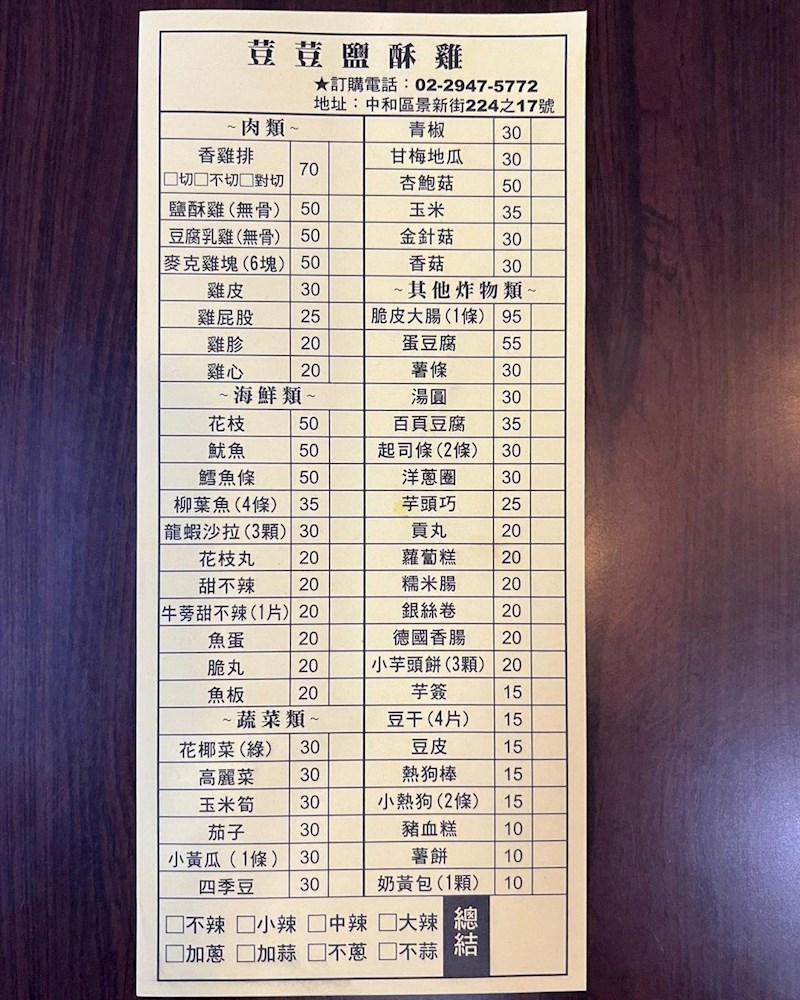 荳荳鹽酥雞
★訂購電話：02-2947-5772
地址：中和區景新街224之17號
~肉類~
香雞排 70
□切□不切□對切
鹽酥雞(無骨) 50
豆腐乳雞(無骨) 50
麥克雞塊(6塊) 50
雞皮 30
雞屁股 25
雞胗 20
雞心 20
~海鮮類~
花枝 50
魷魚 50
鱈魚條 50
柳葉魚(4條) 35
龍蝦沙拉(3顆) 30
花枝丸 20
甜不辣 20
牛蒡甜不辣(1片) 20
魚蛋 20
脆丸 20
魚板 20
~蔬菜類~
花椰菜(綠) 30
高麗菜 30
玉米筍 30
茄子 30
小黃瓜(1條) 30
四季豆 30
青椒 30
甘梅地瓜 30
杏鮑菇 50
玉米 35
金針菇 30
香菇 30
~其他炸物類~
脆皮大腸(1條) 95
蛋豆腐 55
薯條 30
湯圓 30
百頁豆腐 35
起司條(2條) 30
洋蔥圈 30
芋頭巧 25
貢丸 20
蘿蔔糕 20
糯米腸 20
銀絲卷 20
德國香腸 20
小芋頭餅(3顆) 20
芋簽 15
豆干(4片) 15
豆皮 15
熱狗棒 15
小熱狗(2條) 15
豬血糕 10
薯餅 10
奶黃包(1顆) 10
□不辣 □小辣 □中辣 □大辣
□加蔥 □加蒜 □不蔥 □不蒜
總結